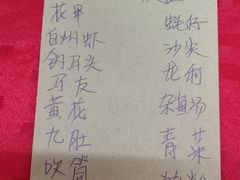 花甲
白灼虾
钩耳头
马友
黄花
九肚
吹筒
蚝仔
沙尖
龙利
杂鱼汤
青菜